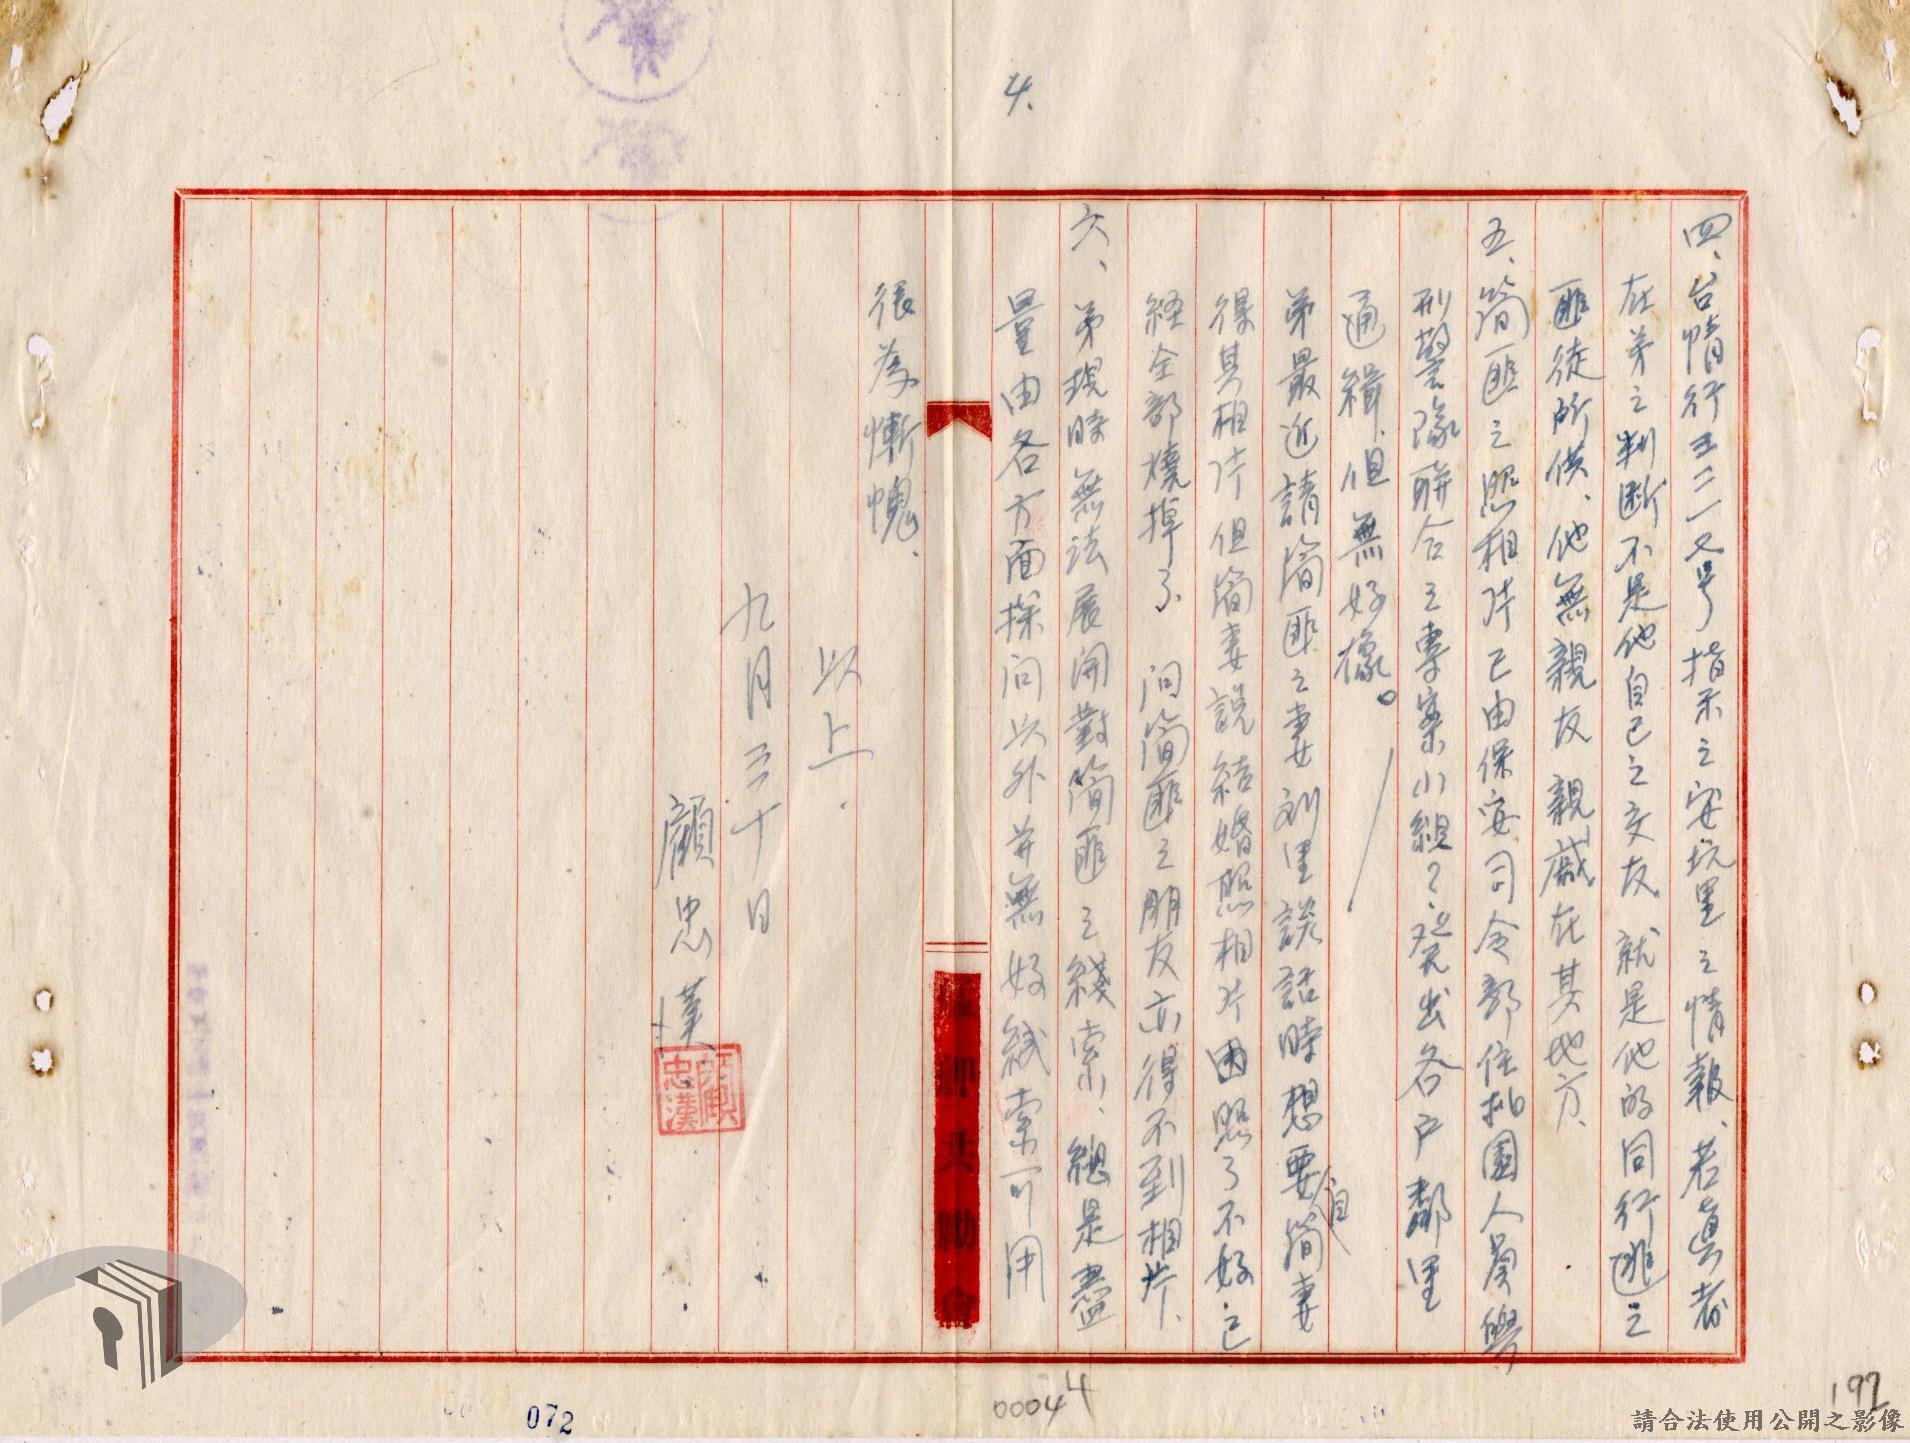 4.
四、台情行字三一七号指示之安坑里之情報、若真者
在弟之判断不是他自己之交友、就是他的同行逃之
匪徒所供、他無親友親戚在其地方、
五、簡匪之照相片已由保安司令部住桃園人員與
刑警隊聯合之專案小組？発出各戶鄰里
通緝、但無好像。
弟最近請簡匪之妻刘里談話時想要簡妻
自
得其相片但簡妻説結婚照相片因照了不好已
経全部燒掉了、問簡匪之朋友亦得不到相片、
六、弟現時無法展開對簡匪之綫索、總是盡
量由各方面探问以外並無好綫索可用
很為慚愧、
以上、
九月三十日
顧忠漢
顧忠漢
072
00044
192
請合法使用公開之影像